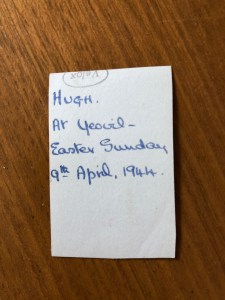 Velox
HUGH.
At Yeovil-
Easter Sunday
9th April, 1944.